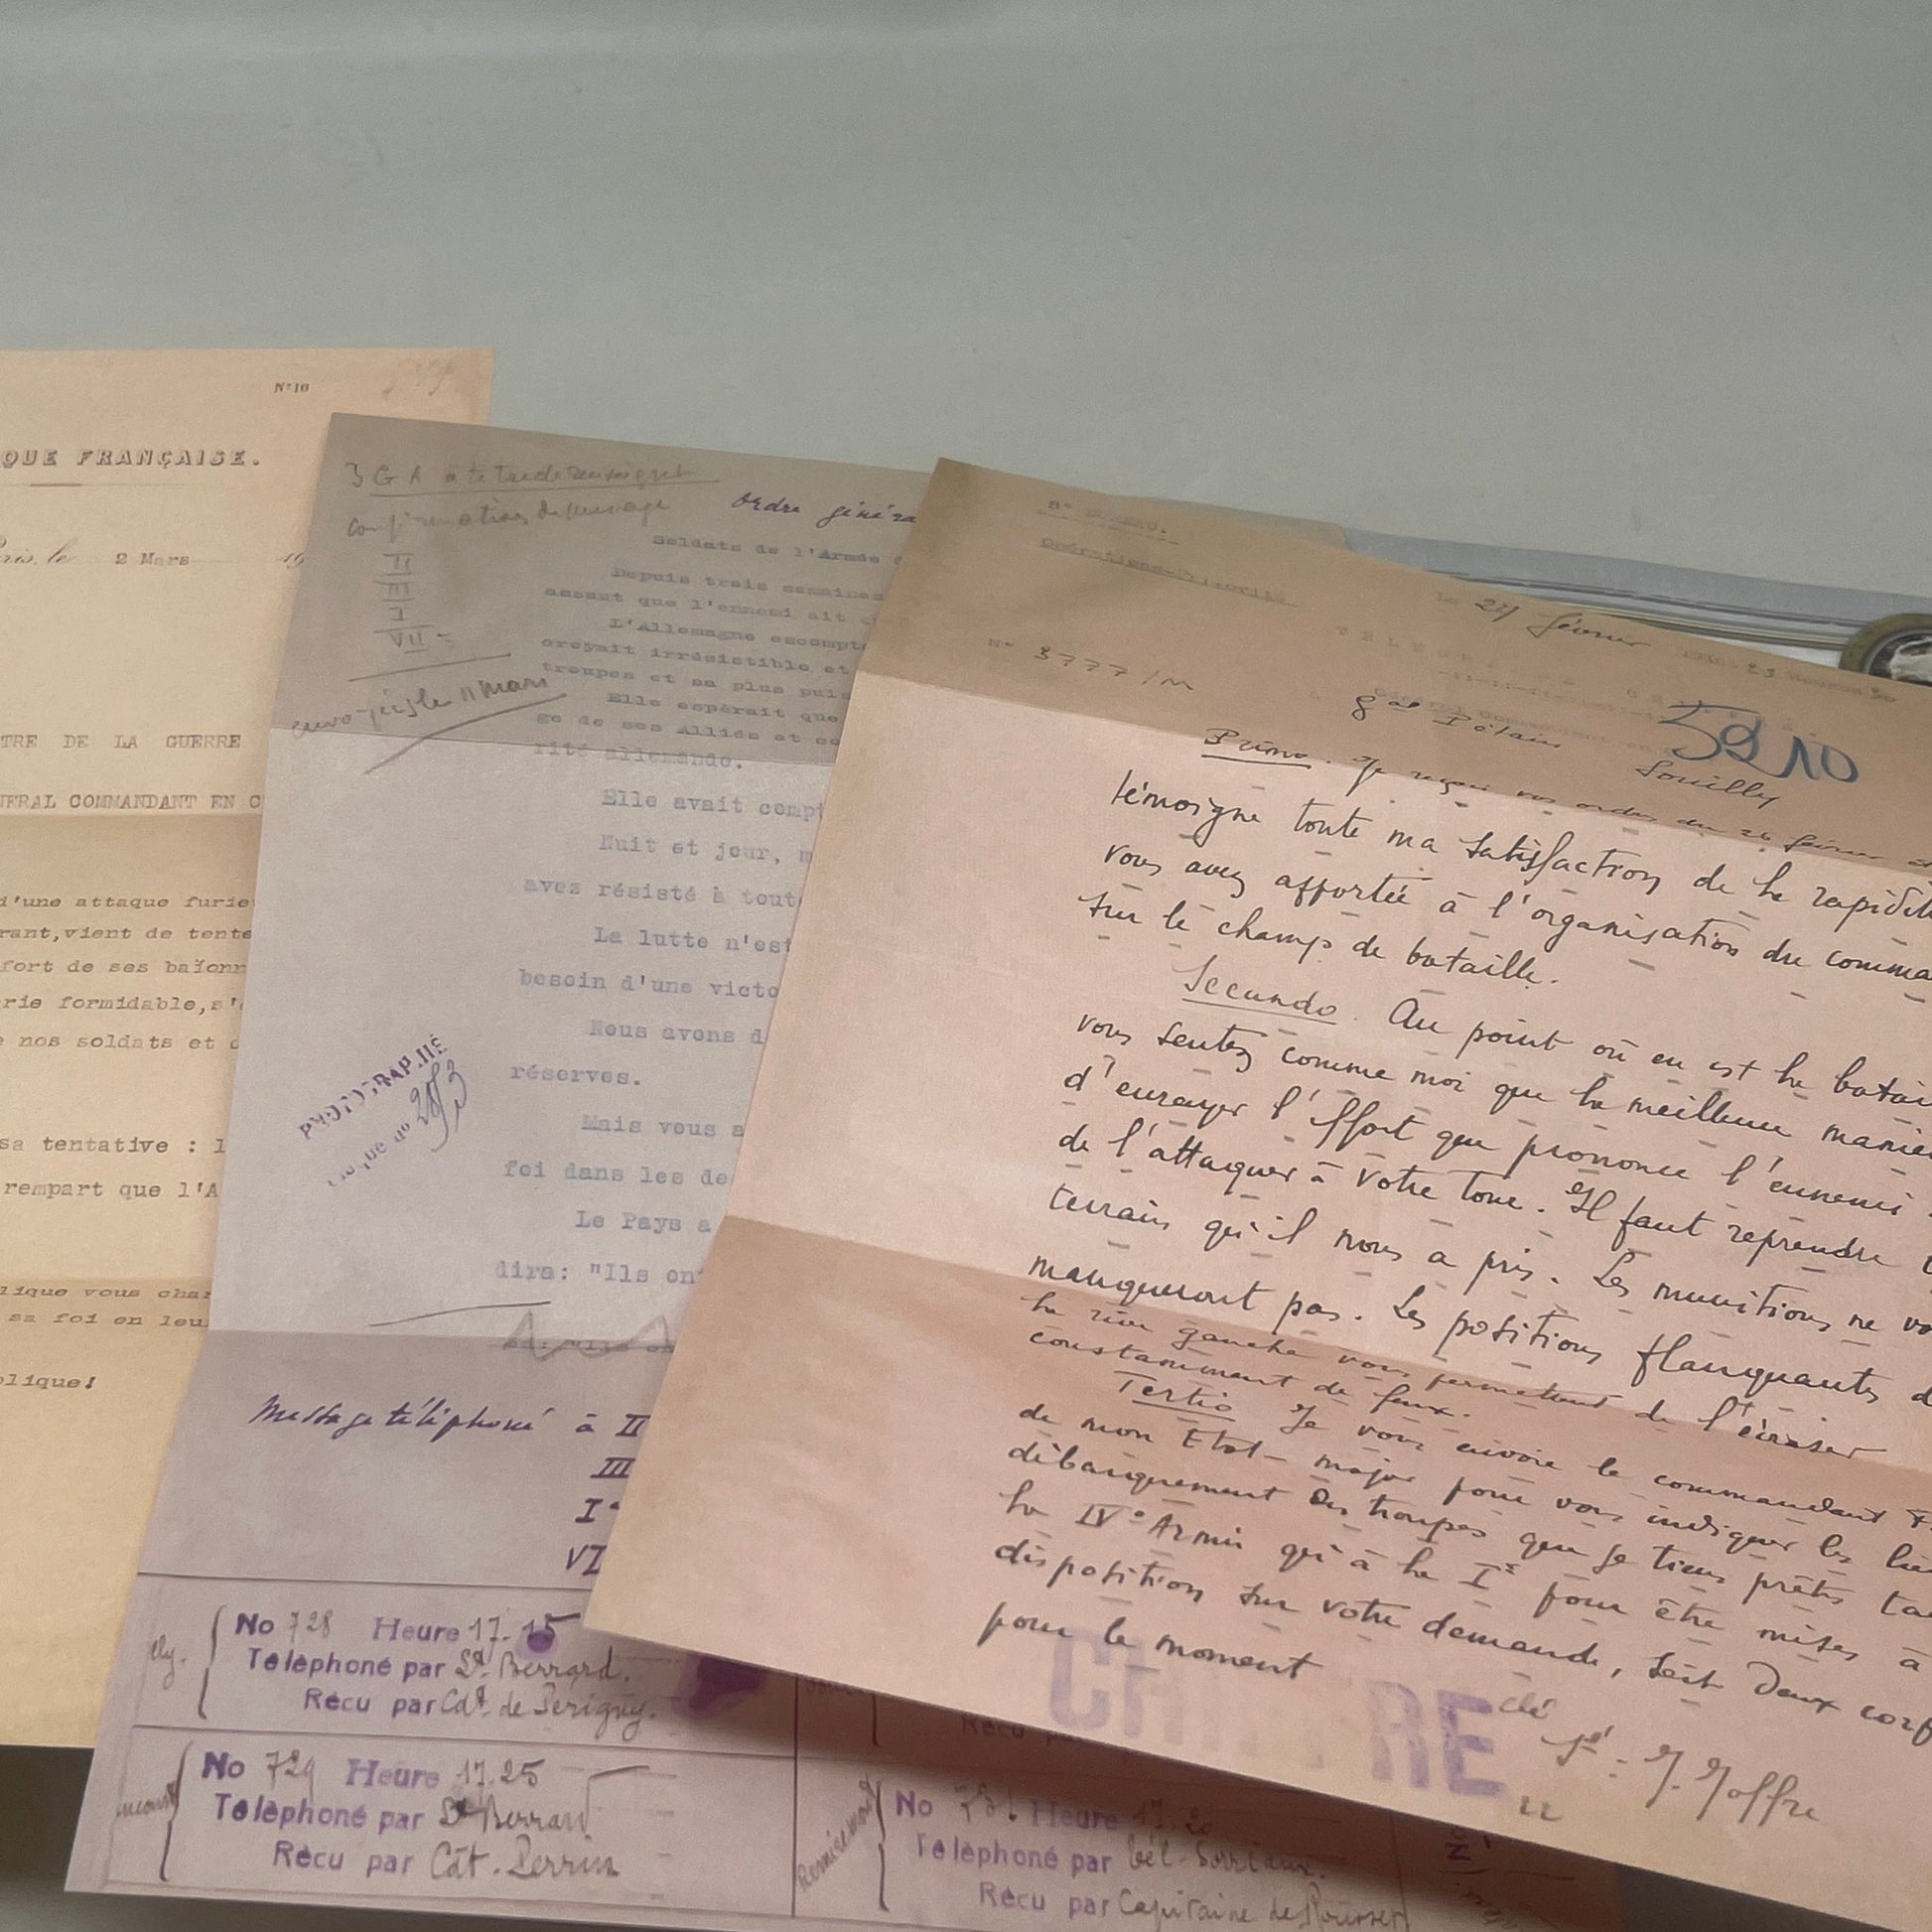 N° 16
QUE FRANÇAISE.
Paris, le 2 Mars 19
TRE DE LA GUERRE
NERAL COMMANDANT EN C
d'une attaque furie
rant, vient de tente
fort de ses baïonn
rie formidable, s'
e nos soldats et d
sa tentative : l
rempart que l'A
lique vous char
sa foi en leu
blique!
3 G A
Ordre généra
Soldats de l'Armée d
Depuis trois semaines
assaut que l'ennemi ait
II
III
I
VII
L'Allemagne escompta
croyait irrésistible et
troupes et sa plus puis
Elle espérait que
ge de ses Alliés et co
rité allemande.
envoyé le 11 mars
Elle avait compt
Nuit et jour, m
avez résisté à tout
La lutte n'est
besoin d'une victo
Nous avons d
réserves.
PHOTOGRAPHIÉ
Mais vous a
foi dans les de
Le Pays a
dira: "Ils ont
Message téléphoné à II
III
I
VI
No 728 Heure 17.15
Téléphoné par Lt. Berrard.
Récu par Cdt de Perigny.
No 729 Heure 17.25
Téléphoné par Lt Berrard
Récu par Cdt. Perrin
Remiremont
No Heure 17.20
Téléphoné par
Récu par Capitaine de
Le 27 février
N° 3777/M
gal Pétain
Souilly
5210
Primo. Je reçois vos ordres du 26 février et
témoigne toute ma satisfaction de la rapidité
vous avez apportée à l'organisation du comma
sur le champ de bataille.
Secundo. Au point où en est la batai
vous sentez comme moi que la meilleure maniè
d'enrayer l'effort que prononce l'ennemi
de l'attaquer à votre tour. Il faut reprendre
terrain qu'il nous a pris. Les munitions ne vo
manqueront pas. Les positions flanquantes d
la rive gauche vous permettent de l'écraser
constamment de feux.
Tertio Je vous envoie le commandant
de mon Etat-major pour vous indiquer les lieu
débarquement des troupes que je tiens prêtes ta
la IVe Armée qu'à la Ie pour être mises à
disposition sur votre demande, soit deux corp
pour le moment
CHIFFRE
Sé: J. Joffre